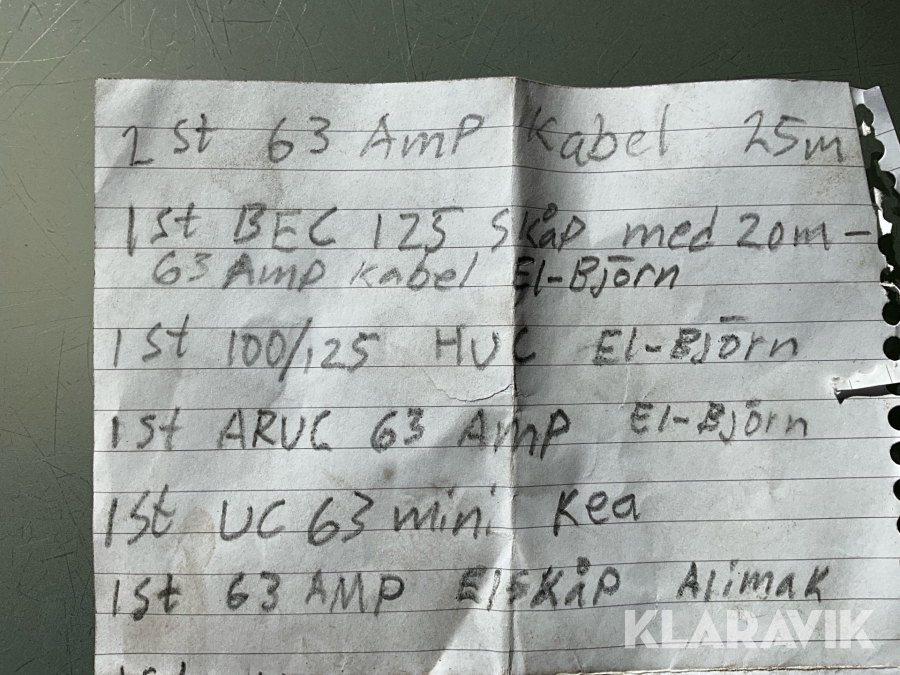 2 st 63 Amp Kabel 25m
1st BEC 125 Skåp med 20m-
63 Amp kabel El-Björn
1st 100/125 HUC El-Björn
1st ARUC 63 Amp El-Björn
1st UC 63 mini Kea
1st 63 AMP Elskåp Alimak
KLARAVIK
1st